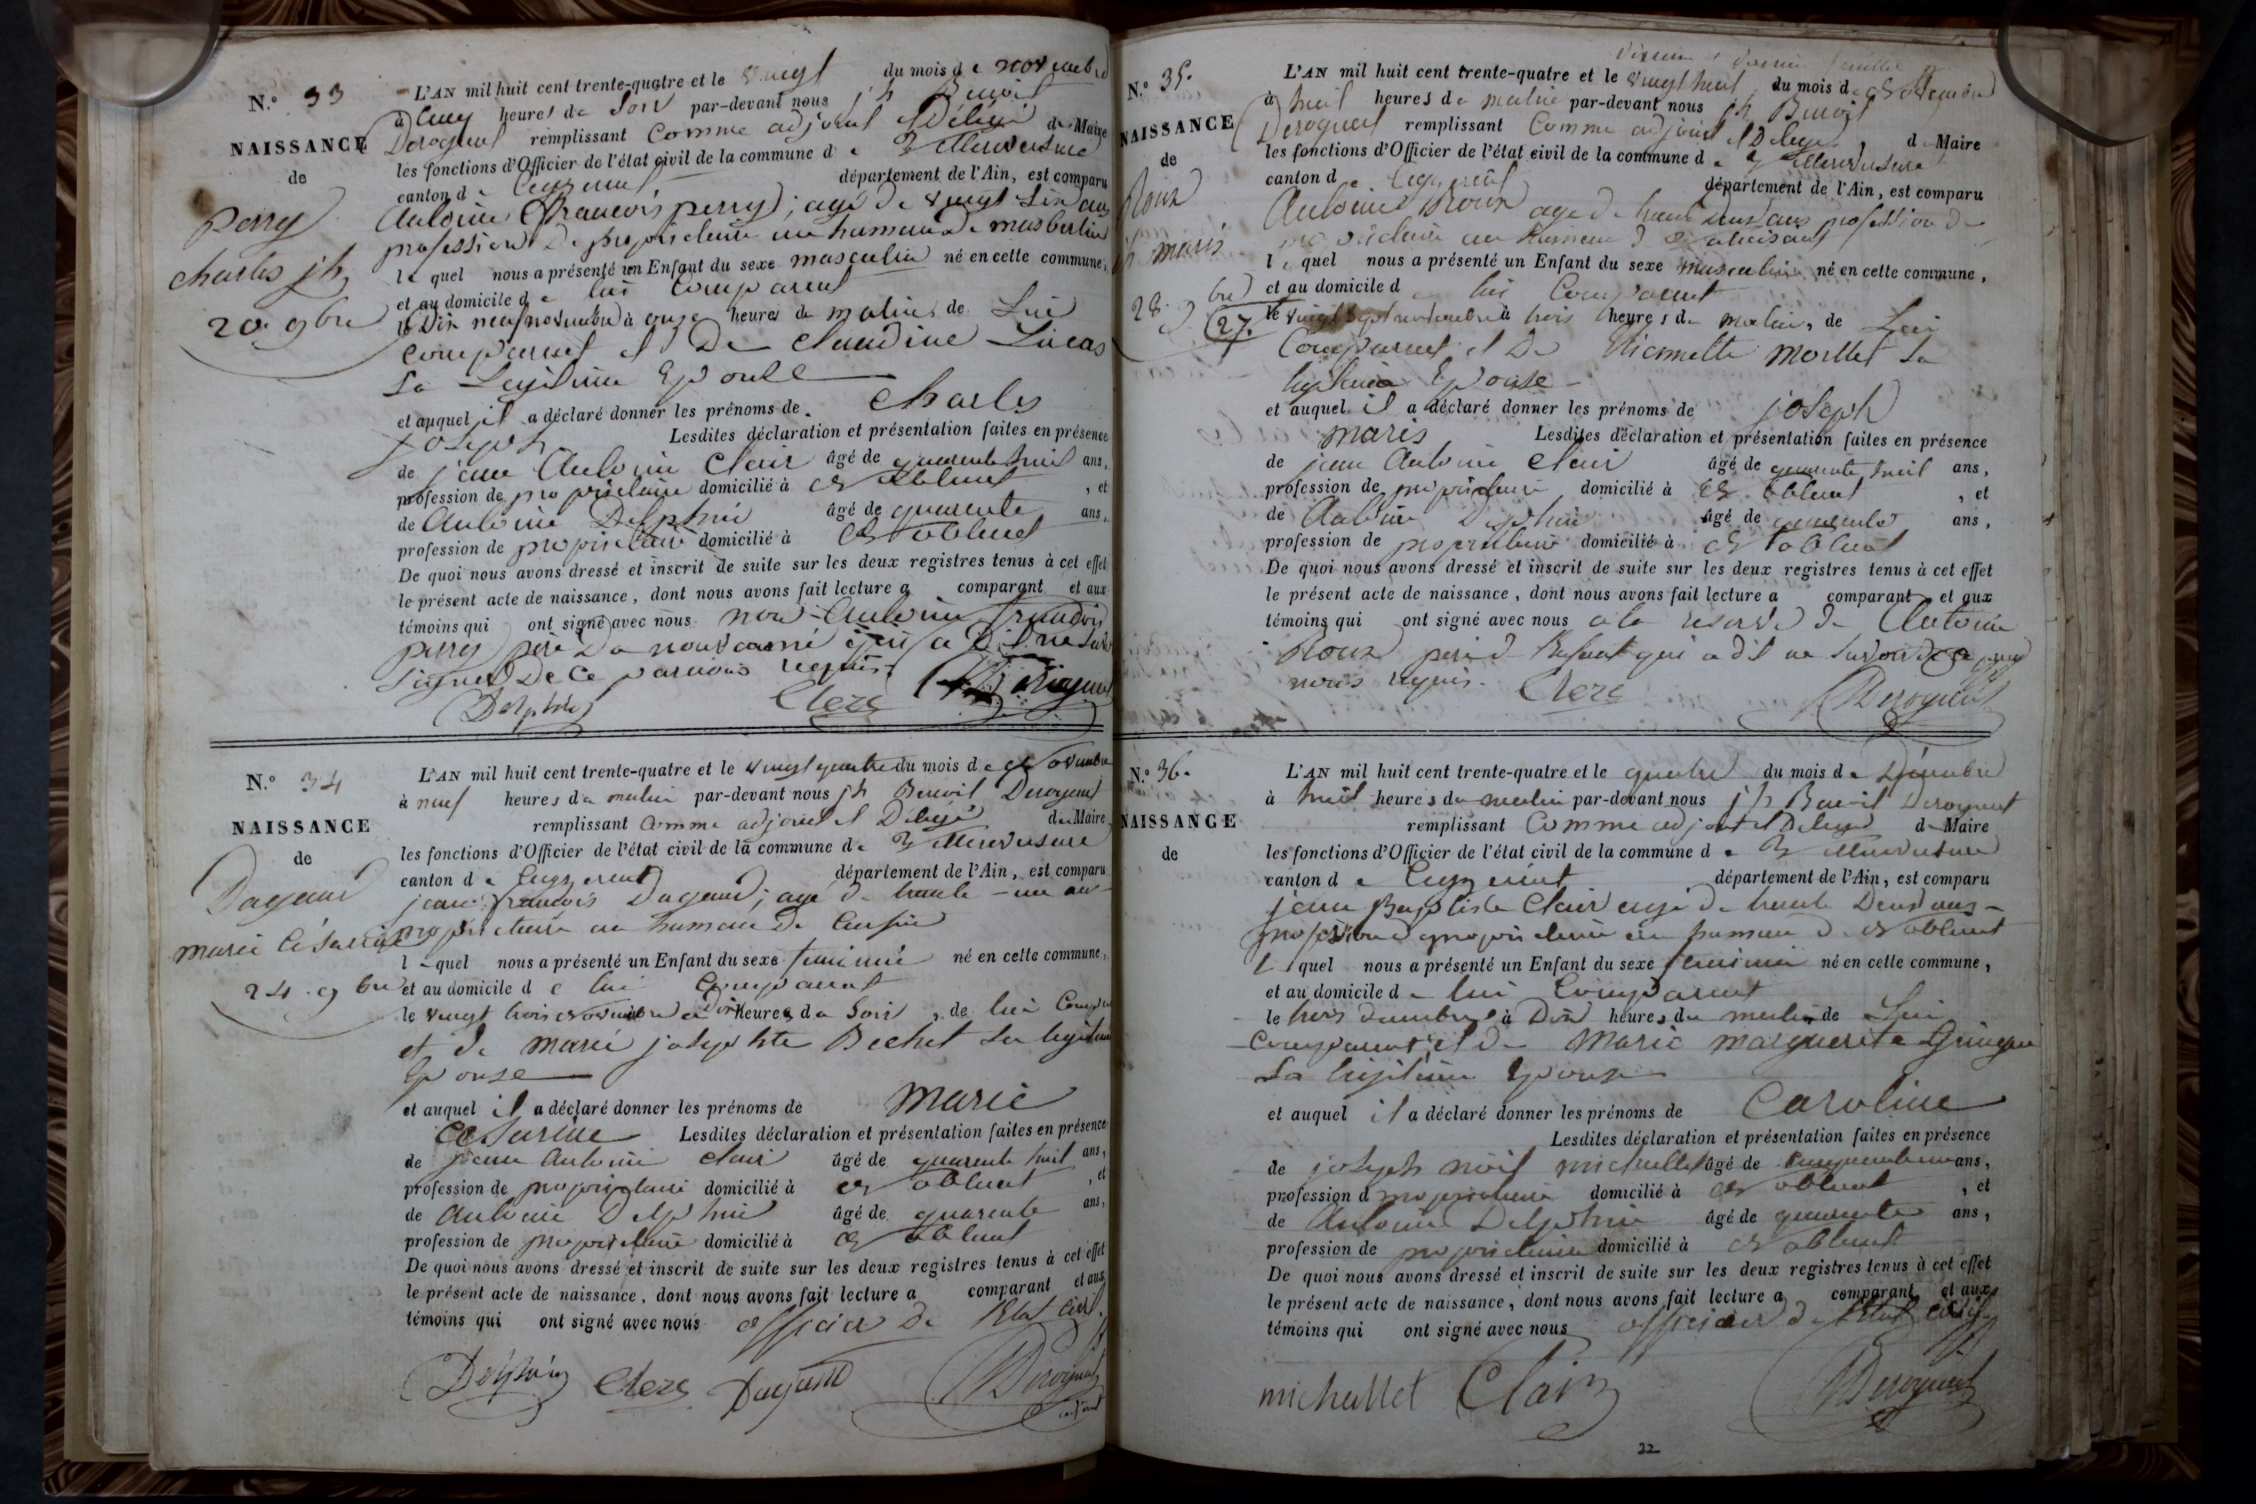 N.º 33
NAISSANCE
de
Perry
charles jh
20 9bre
L'AN mil huit cent trente-quatre et le vingt du mois de novembre
à cinq heures du soir par-devant nous jh Benoit
Deroguat remplissant comme adjoint et Délégué du Maire
les fonctions d'Officier de l'état civil de la commune de Villereversure
canton de Ceyzeriat département de l'Ain, est comparu
Antoine François perry; agé de vingt six ans
profession de propriétaire au hameau de masbertin
lequel nous a présenté un Enfant du sexe masculin né en cette commune,
et au domicile de lui comparant
le Dix neuf novembre à onze heures du matin, de Lui
comparant et De claudine Lucas
Sa Legitime Epouse
et auquel il a déclaré donner les prénoms de charles
joseph Lesdites déclaration et présentation faites en présence
de jean Antoine clair âgé de quarente huit ans,
profession de propriétaire domicilié à , et
de Antoine Delphin âgé de quarente ans,
profession de propriétaire domicilié à
De quoi nous avons dressé et inscrit de suite sur les deux registres tenus à cet effet
le présent acte de naissance, dont nous avons fait lecture a comparant et aux
témoins qui ont signé avec nous non Antoine François
perry père du nouveau né qui a Dit ne savoir
signer De ce par nous requis.
Delphin Clerc Deroguat
N.º 34
NAISSANCE
de
Dagaud
marie Césarine
24 9bre
L'AN mil huit cent trente-quatre et le vingt quatre du mois de novembre
à neuf heures du matin par-devant nous jh Benoit Deroguat
remplissant comme adjoint et Délégué du Maire,
les fonctions d'Officier de l'état civil de la commune de Villereversure
canton de Ceyzeriat département de l'Ain, est comparu
jean françois Dagaud; agé de trente un ans
propriétaire au hameau De
lequel nous a présenté un Enfant du sexe feminin né en cette commune,
et au domicile de lui comparant
le vingt trois novembre à Dix heures du soir, de lui Comparant
et de marie josephte Bechet sa legitime
Epouse
et auquel il a déclaré donner les prénoms de Marie
Cesarine Lesdites déclaration et présentation faites en présence
de jean Antoine clair âgé de quarente huit ans,
profession de propriétaire domicilié à , et
de Antoine Delphin âgé de quarente ans,
profession de propriétaire domicilié à
De quoi nous avons dressé et inscrit de suite sur les deux registres tenus à cet effet
le présent acte de naissance, dont nous avons fait lecture a comparant et aux
témoins qui ont signé avec nous officier de l'état civil.
Delphin Clerc Dagaud Deroguat
adjoint
N.º 35.
NAISSANCE
de
Roux
jh marie
28. 9bre
27.
L'AN mil huit cent trente-quatre et le vingt huit du mois de novembre
à huit heures du matin par-devant nous jh Benoit
Deroguat remplissant Comme adjoint et Délégué du Maire
les fonctions d'Officier de l'état civil de la commune de Villereversure
canton de Ceyzeriat département de l'Ain, est comparu
Antoine Roux agé de trente Deux ans profession de
propriétaire au hameau de
lequel nous a présenté un Enfant du sexe masculin né en cette commune,
et au domicile de lui Comparant
le vingt sept novembre à trois heures du matin, de Lui
Comparant et De Thiennette Morllet Sa
legitime Epouse
et auquel il a déclaré donner les prénoms de joseph
marie Lesdites déclaration et présentation faites en présence
de jean Antoine clair âgé de quarente huit ans,
profession de propriétaire domicilié à , et
de Antoine Delphin âgé de quarente ans,
profession de propriétaire domicilié à
De quoi nous avons dressé et inscrit de suite sur les deux registres tenus à cet effet
le présent acte de naissance, dont nous avons fait lecture a comparant et aux
témoins qui ont signé avec nous a la reserve de Antoine
Roux père de l'Enfant qui a dit ne savoir de ce par
nous requis. Clerc Deroguat
N.º 36.
NAISSANCE
de
L'AN mil huit cent trente-quatre et le quatre du mois de Décembre
à huit heures du matin par-devant nous jh Benoit Deroguat
remplissant Comme adjoint et Délégué du Maire
les fonctions d'Officier de l'état civil de la commune de Villereversure
canton de Ceyzeriat département de l'Ain, est comparu
jean Baptiste Clair agé de trente Deux ans
profession de propriétaire au hameau de
lequel nous a présenté un Enfant du sexe feminin né en cette commune,
et au domicile de lui Comparant
le trois décembre à Dix heures du matin, de Lui
Comparant; et De Marie marguerite
Sa legitime Epouse
et auquel il a déclaré donner les prénoms de Caroline
Lesdites déclaration et présentation faites en présence
de joseph michallet âgé de ans,
profession de propriétaire domicilié à , et
de Antoine Delphin âgé de quarente ans,
profession de propriétaire domicilié à
De quoi nous avons dressé et inscrit de suite sur les deux registres tenus à cet effet
le présent acte de naissance, dont nous avons fait lecture a comparant et aux
témoins qui ont signé avec nous officier de l'état civil
michallet Clair Deroguat
22